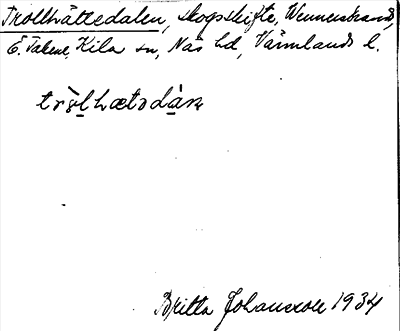 Trollhättedalen, skogsskifte, Wennersrand,
E. Takene, Kila sn, Näs hd, Värmlands l.
tròlhætədàɳ
Britta Johansson 1934